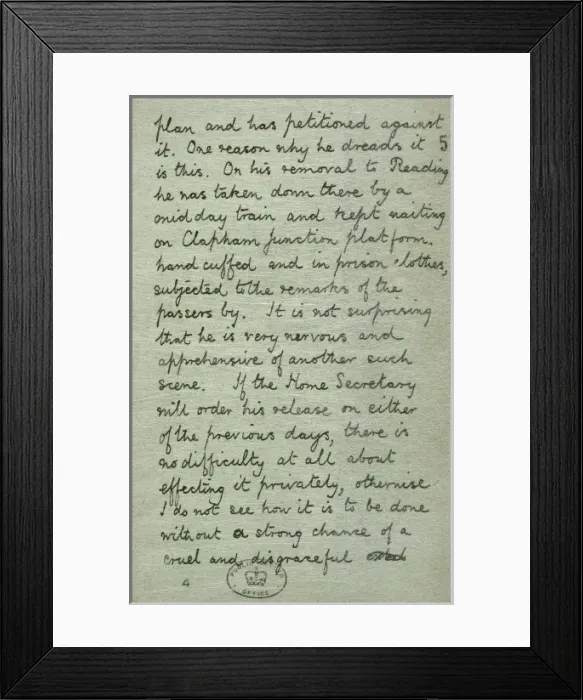 plan and has petitioned against
it. One reason why he dreads it 5
is this. On his removal to Reading
he was taken down there by a
midday train and kept waiting
on Clapham Junction platform.
handcuffed and in prison clothes,
subjected to the remarks of the
passers by. It is not surprising
that he is very nervous and
apprehensive of another such
scene. If the Home Secretary
will order his release on either
of the previous days, there is
no difficulty at all about
effecting it privately, otherwise
I do not see how it is to be done
without a strong chance of a
cruel and disgraceful
4
PUBLIC RECORD
OFFICE